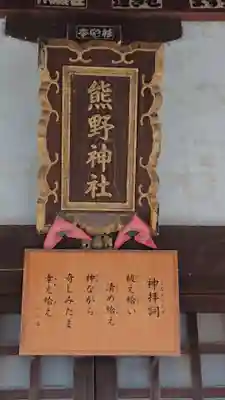 熊野神社
神拝詞
祓え給い
清め給え
神ながら
奇しみたま
幸え給え